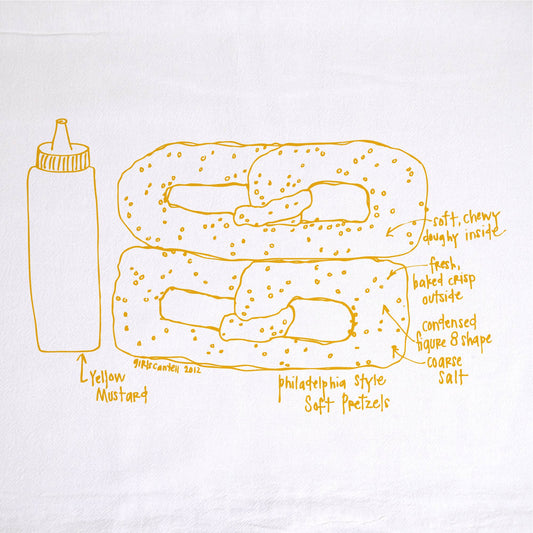 soft, chewy
doughy inside
fresh,
baked crisp
outside
condensed
figure 8 shape
coarse
salt
girlscantell 2012
Yellow
Mustard
philadelphia style
Soft Pretzels